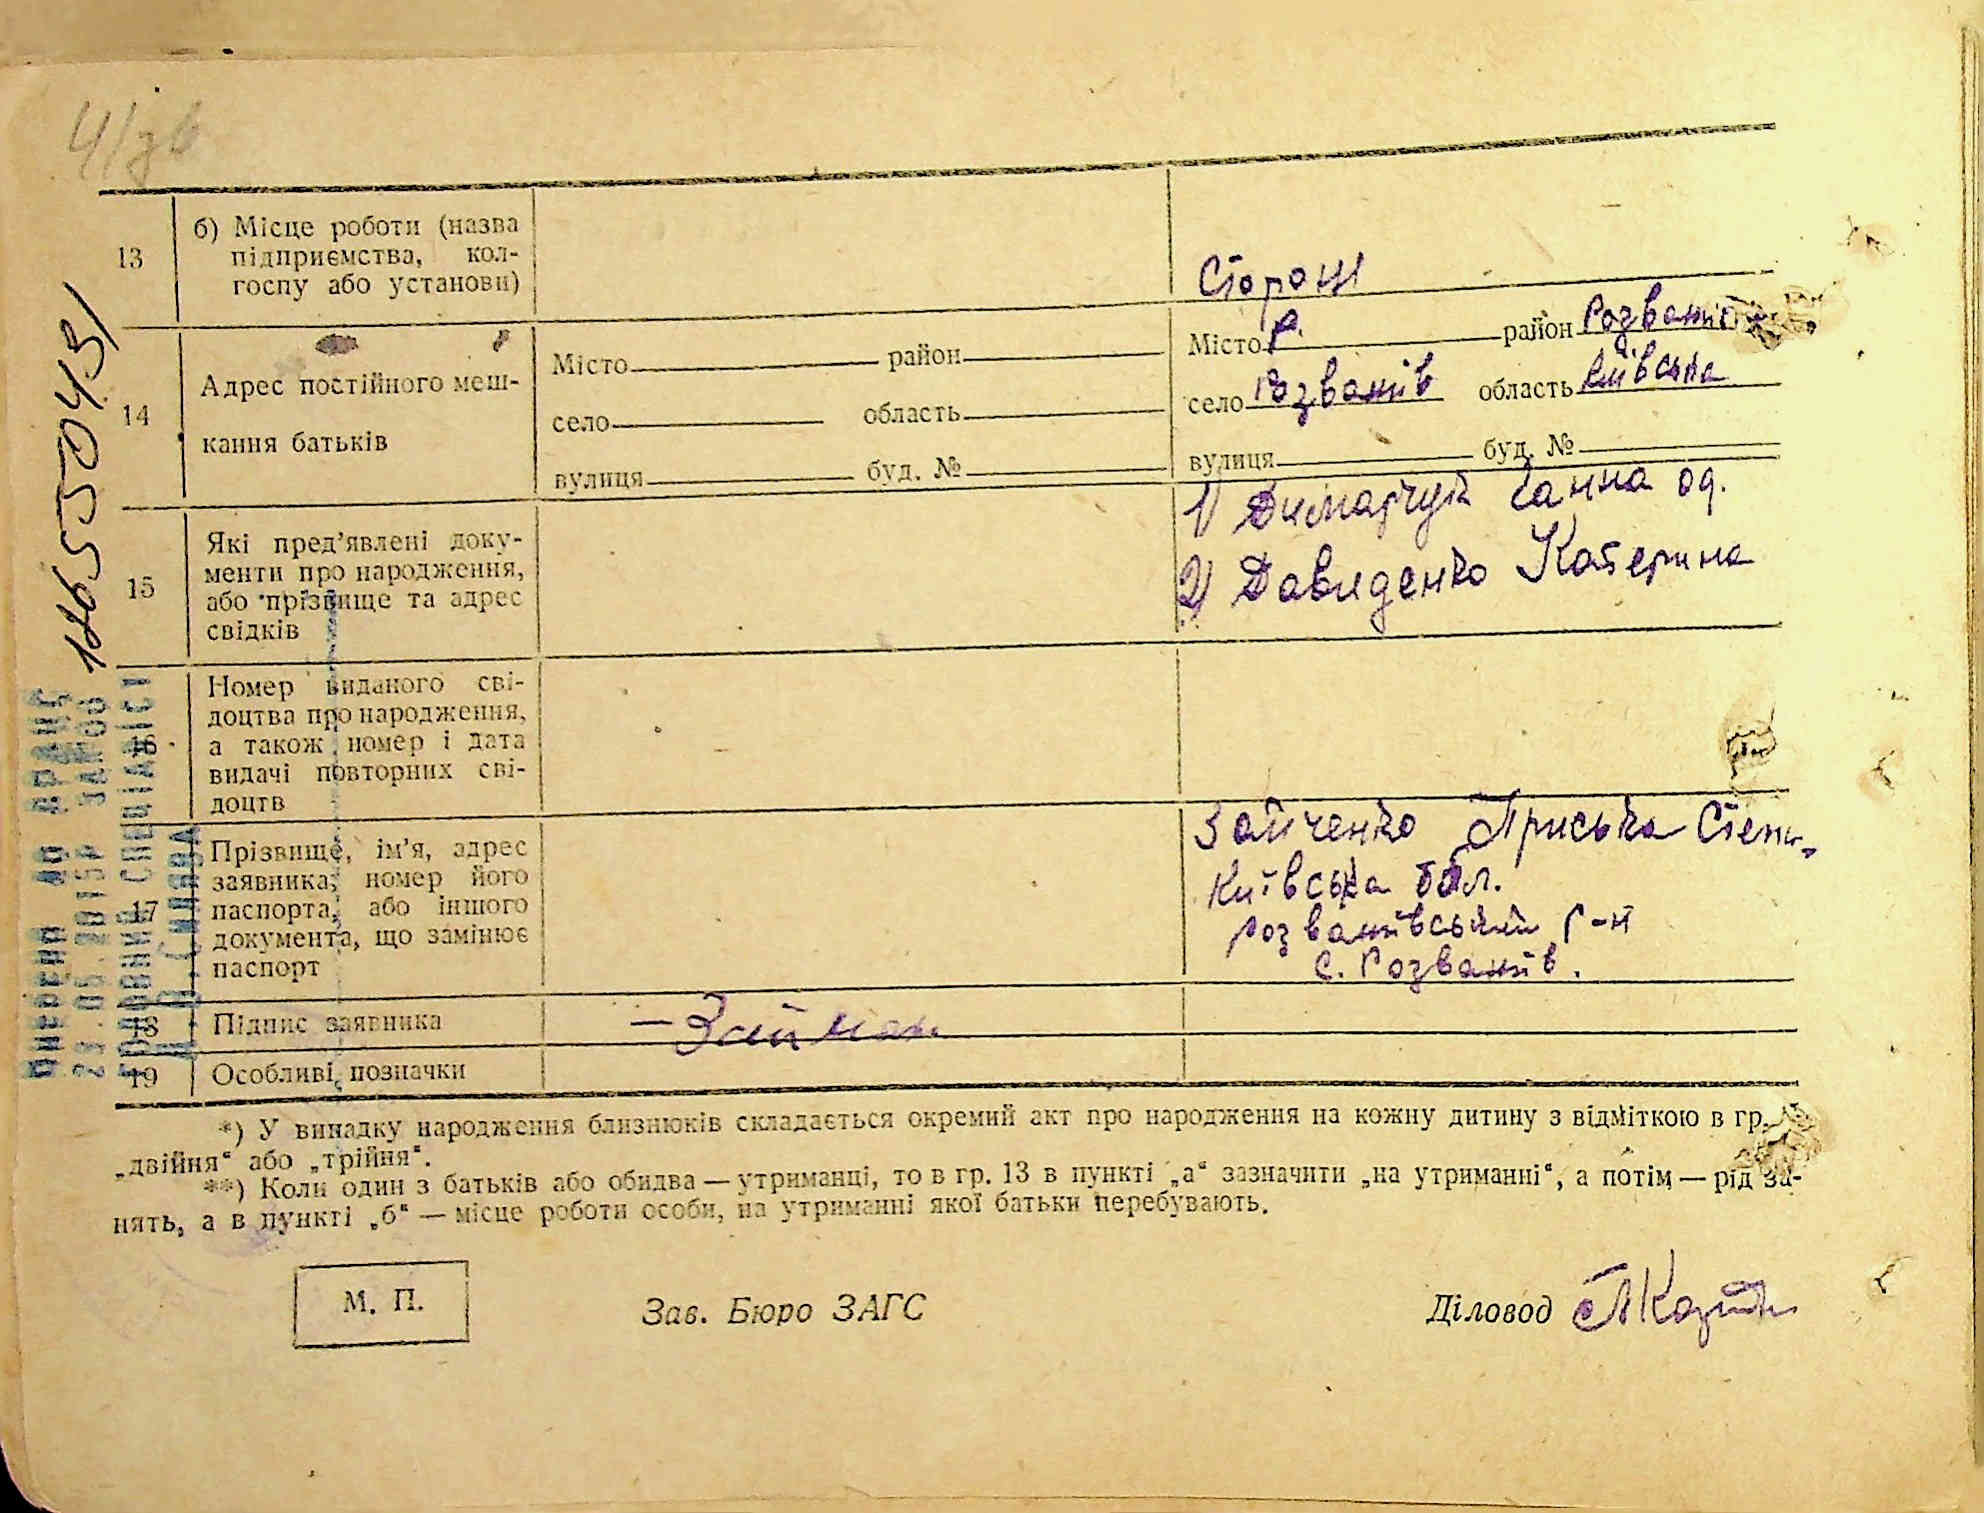 4/зв
13
б) Місце роботи (назва
підприємства, кол-
госпу або установи)
Сторож
14
Адрес постійного меш-
кання батьків
Місто район
село область
вулиця буд. №
Місто Р. район Розважів
село Розважів область Київська
вулиця буд. №
15
Які пред’явлені доку-
менти про народження,
або прізвище та адрес
свідків
1)
2) Давиденко Катерина
16
Номер виданого сві-
доцтва про народження,
а також номер і дата
видачі повторних сві-
доцтв
17
Прізвище, ім’я, адрес
заявника, номер його
паспорта, або іншого
документа, що замінює
паспорт
Зайченко Приська Степ.
Київська обл.
Розважівський р-н
с. Розважів.
18
Підпис заявника
19
Особливі позначки
*) У випадку народження близнюків складається окремий акт про народження на кожну дитину з відміткою в гр.
„двійня“ або „трійня“.
**) Коли один з батьків або обидва — утриманці, то в гр. 13 в пункті „а“ зазначити „на утриманні“, а потім — рід за-
нять, а в пункті „б“ — місце роботи особи, на утриманні якої батьки перебувають.
М. П.
Зав. Бюро ЗАГС
Діловод